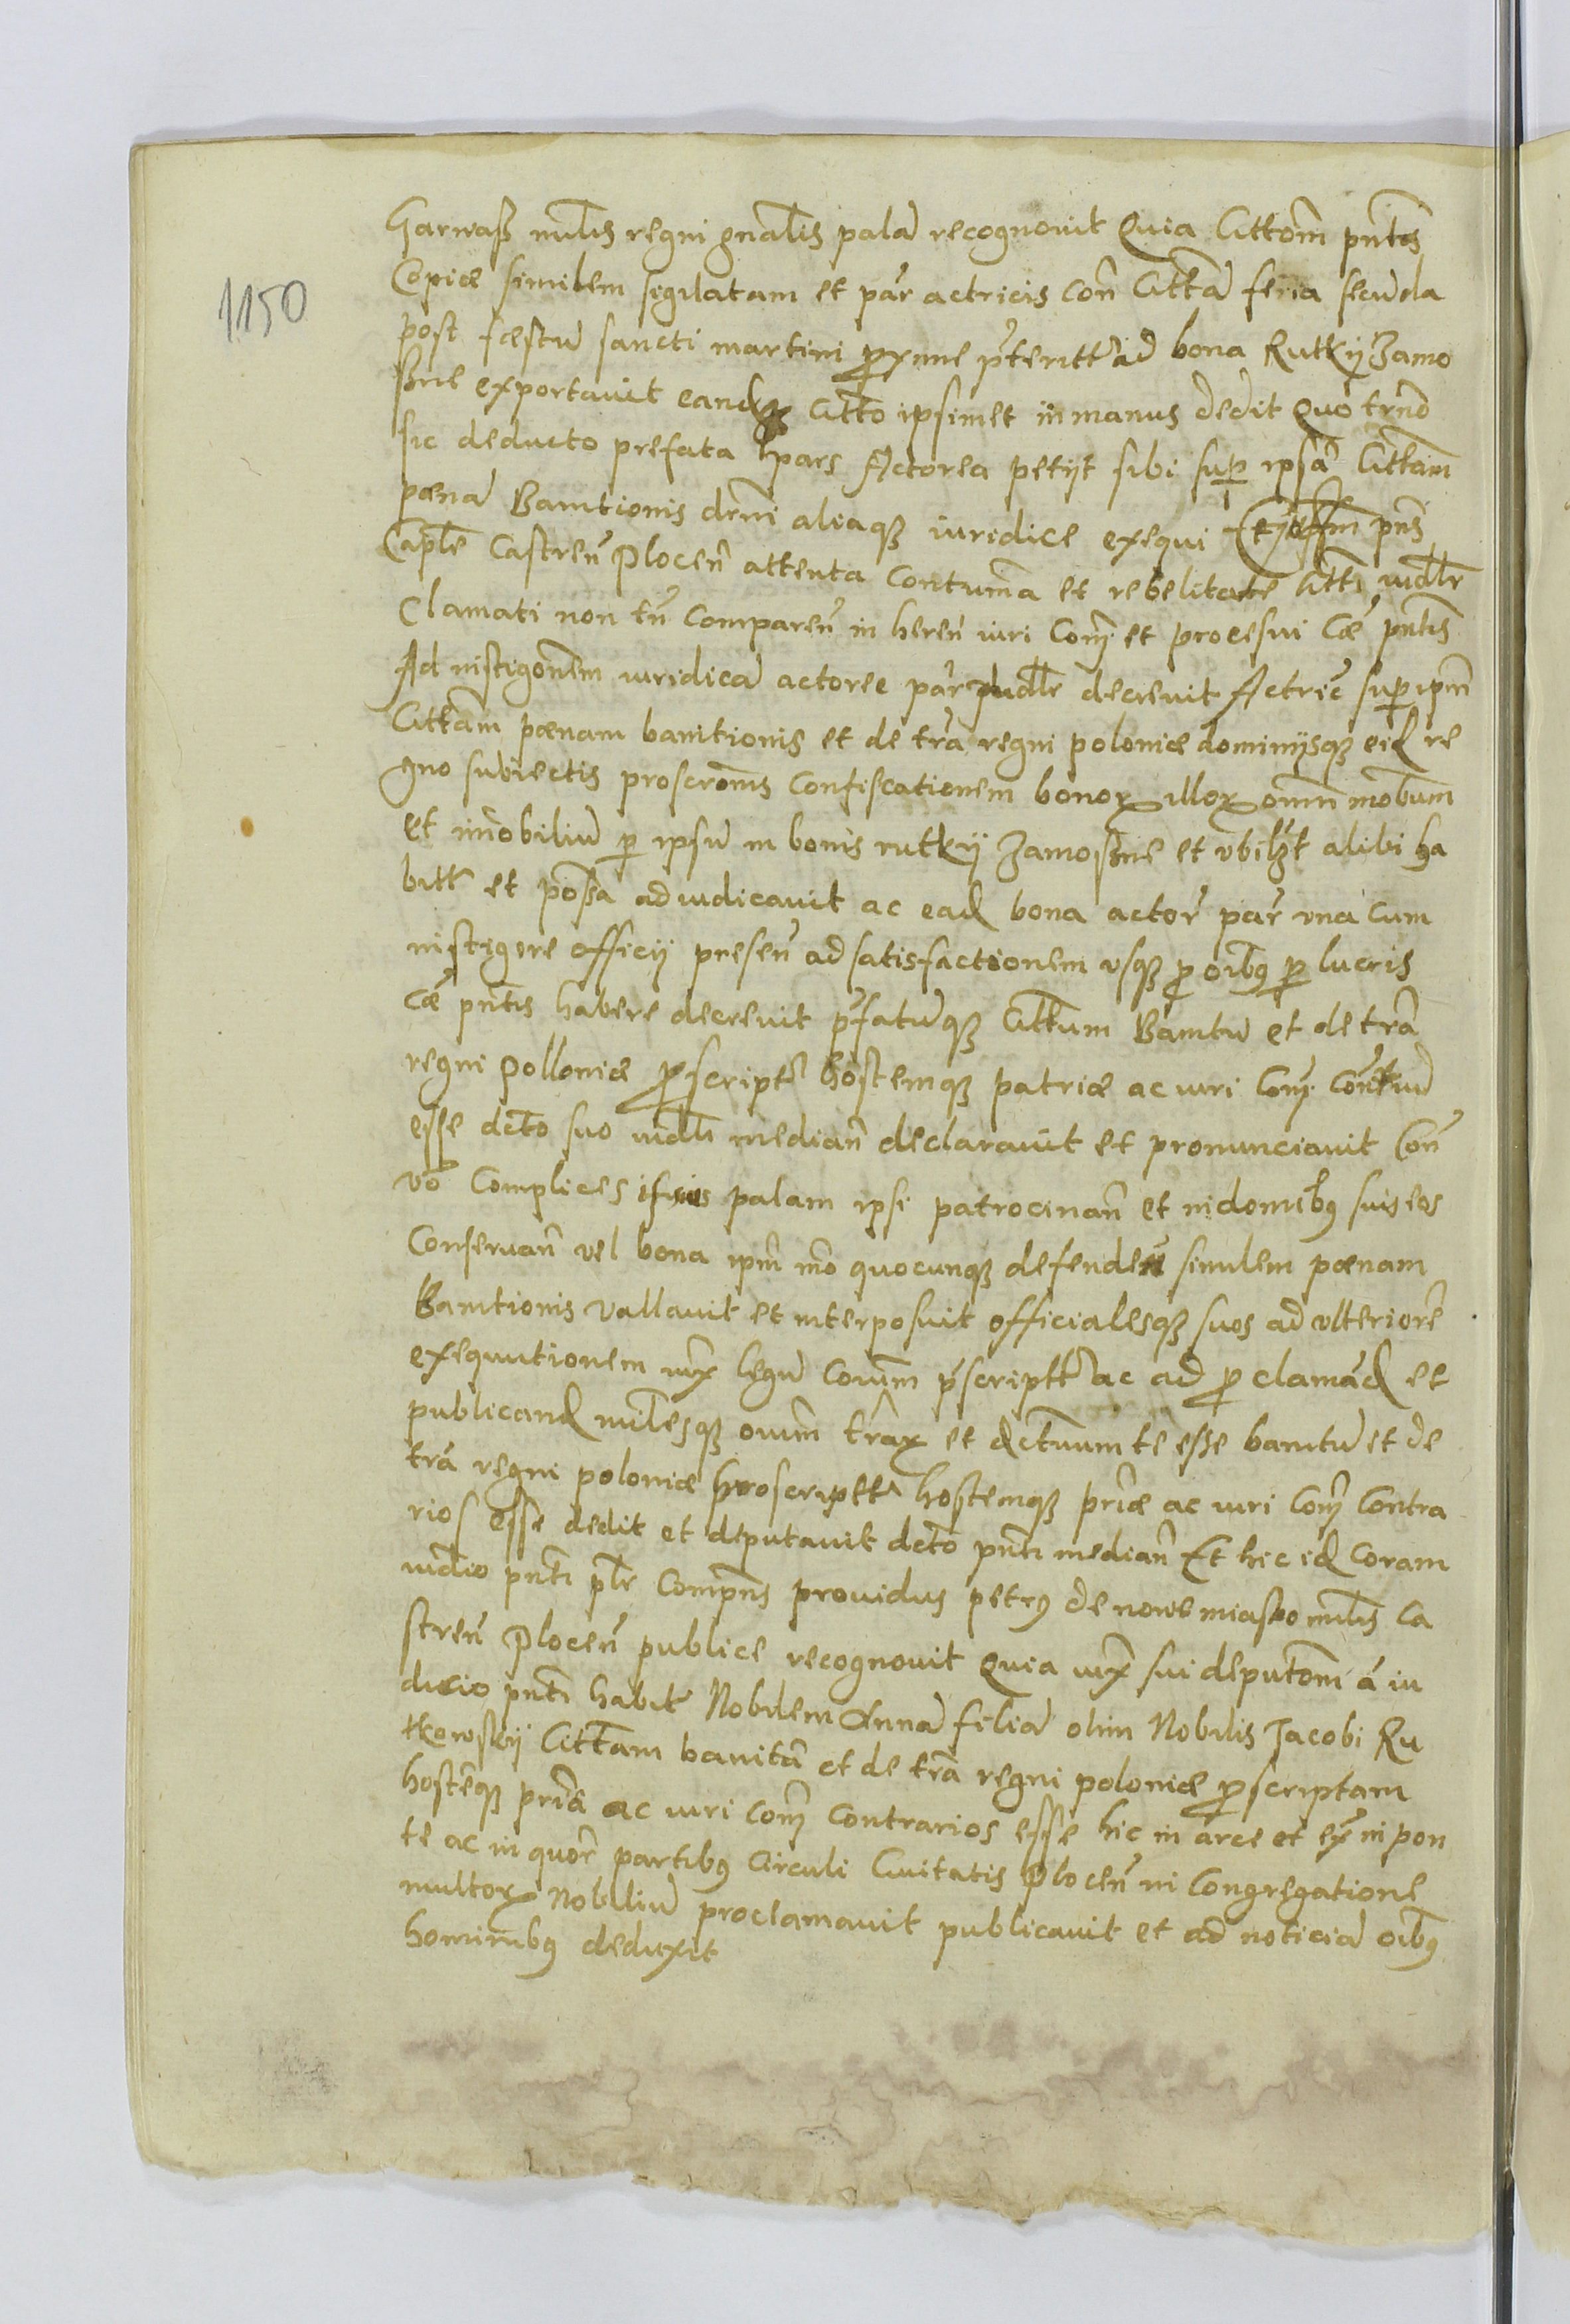 Garwaß mnlis regni gnalis palã recognovit Quia Cittom pntis
1150
Copiæ similem sigilatam et par actricis con Cittã feria secũda
post fæstũ sancti martini proxime prteritt ad bona Rutkÿ Zamo
ßne exportavit eandqz Citto ipsimet in manus dedit Quo trno
sic deducto prefata pars Actorea petÿt sibi sup ipsã Cittam
pænã Banitionis drni aliaqz iuridice exequi Et offm pns
Caple Castren Plocen attenta Contuma et rebelitate Citti iudlr
Clamati non tn Comparen in heren iuri Com et procesui Cæ pntis
Ad nistigonem iuridicã actoree par iudlr decrevit Actric sup ipm
Cittam pænam banitionis et de tra regni poloniæ dominÿsqz eid re
gno subiectis proscronis Confiscationem bonor illor omn mobum
et imobiliũ p ipsũ in bonis rutkÿ Zamoßne et ubilzt alibi ha
bitt et poßa adiudicavit ac ead bona actor par una cum
nistigore officÿ presen ad satisfactionem usqz p oibg p lucris
cæ pntis habere decrevit prfatũqz Cittum Banitũ et de tra
regni Polloniæ proscript hostemqz patriæ ac iuri Com Contriũ
esse dcto suo iudli median declaravit et pronunciavit Con
vo Complices ipsius palam ipsi patrocinan et in domibg suis eos
Conservan vel bona ipm mo quocunqz defenden similem pænam
Banitionis vallavit et interposuit officialesqz suos ad ulteriorẽ
exequutionem iux legũ Corum prscriptt ac ad proclamãd et
publicand mnlesqz ouum trax et dctuumte esse banitũ et de
tra regni poloniæ proscriptt hostemqz priæ ac iuri Com Contra
rios esse dedit et deputavit dcto pnti median Et hic id Coram
iudio pnti plr Compns providus petrg de nowe miasto mnlis Ca
stren Plocen publice recognovit Quia iux sui deputoni a iu
dicio pnti habit Nobilem Annã filiã olim Nobilis Jacobi Ru
tkowskÿ Cittam banitã et de tra regni poloniæ proscriptam
hostẽqz priã ac iuri Com Contrarios esse hic in arce et ex in pon
te ac in quor partibg Circuli Civitatis Plocen in Congregatione
multor Nobiliũ proclamavit publicavit et ad noticiã oibg
hominibg deduxit